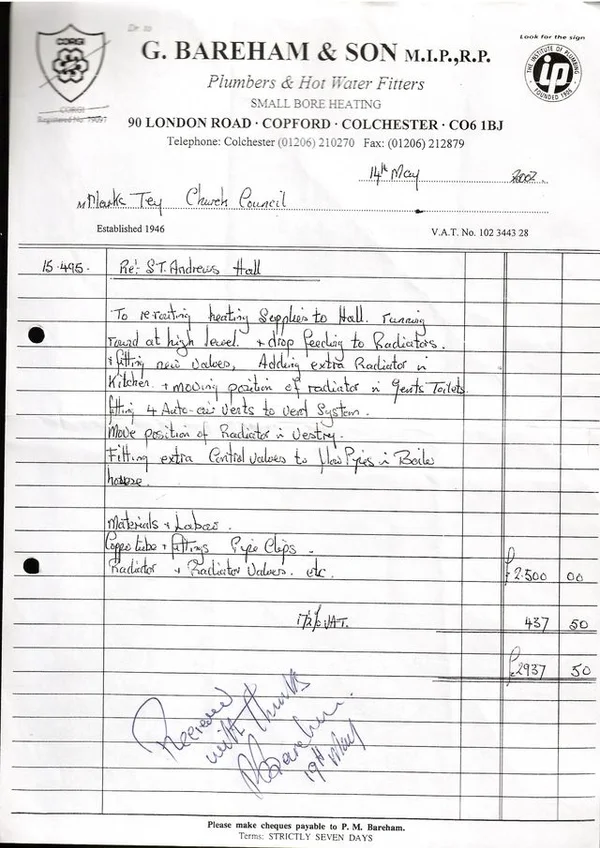 Dr. to
Look for the sign
CORGI
G. BAREHAM & SON M.I.P.,R.P.
THE INSTITUTE OF PLUMBING
ip
FOUNDED 1906
Plumbers & Hot Water Fitters
SMALL BORE HEATING
CORGI
Registered No 79097
90 LONDON ROAD · COPFORD · COLCHESTER · CO6 1BJ
Telephone: Colchester (01206) 210270 Fax: (01206) 212879
14th May 2002
M Marks Tey Church Council
Established 1946
V.A.T. No. 102 3443 28
15.495. Re: ST. Andrews Hall
To rerouting heating Supplies to Hall. running
round at high level. + drop feeding to Radiators.
& fitting new valves, Adding extra Radiator in
Kitchen. + moving position of radiator in Gents Toilets.
fitting 4 Auto-air vents to vent System.
Move position of Radiator in Vestry.
Fitting extra Control valves to flow Pipes in Boile
house
Materials + Labour.
Copper tube + fittings Pipe Clips.
Radiator + Radiator Valves. etc. £2.500 00
17½% VAT. 437 50
£2937 50
Received
with thanks
P Bareham.
19th May
Please make cheques payable to P. M. Bareham.
Terms: STRICTLY SEVEN DAYS